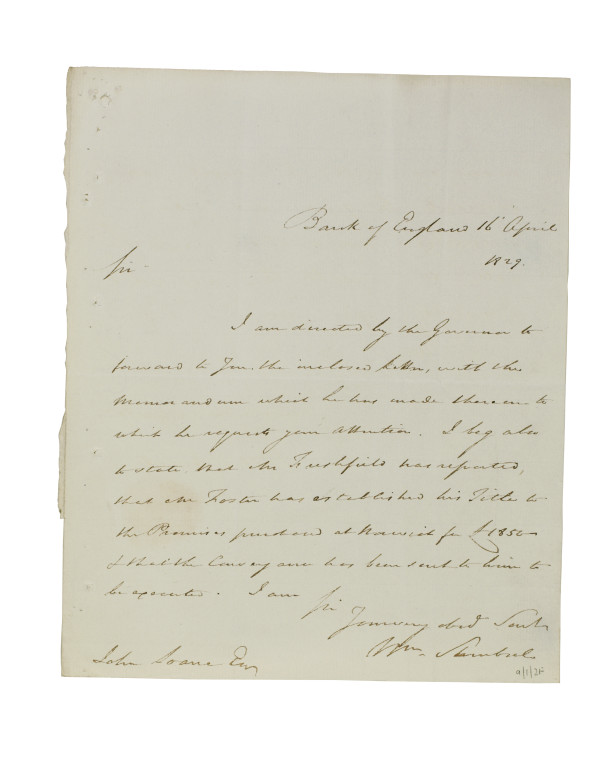 Bank of England 16th April
1829.
Sir
I am directed by the Governor to
forward to You the inclosed letter, with the
Memorandum which he has made thereon to
which he requests your attention. I beg also
to state that Mr Freshfield has reported,
that Mr Foster has established his Title to
the Premises purchased at Norwich for £1850
& that the Conveyance has been sent to him to
be executed. I am
Sir
Your very obedt Servt
Wm.
John Soane Esq